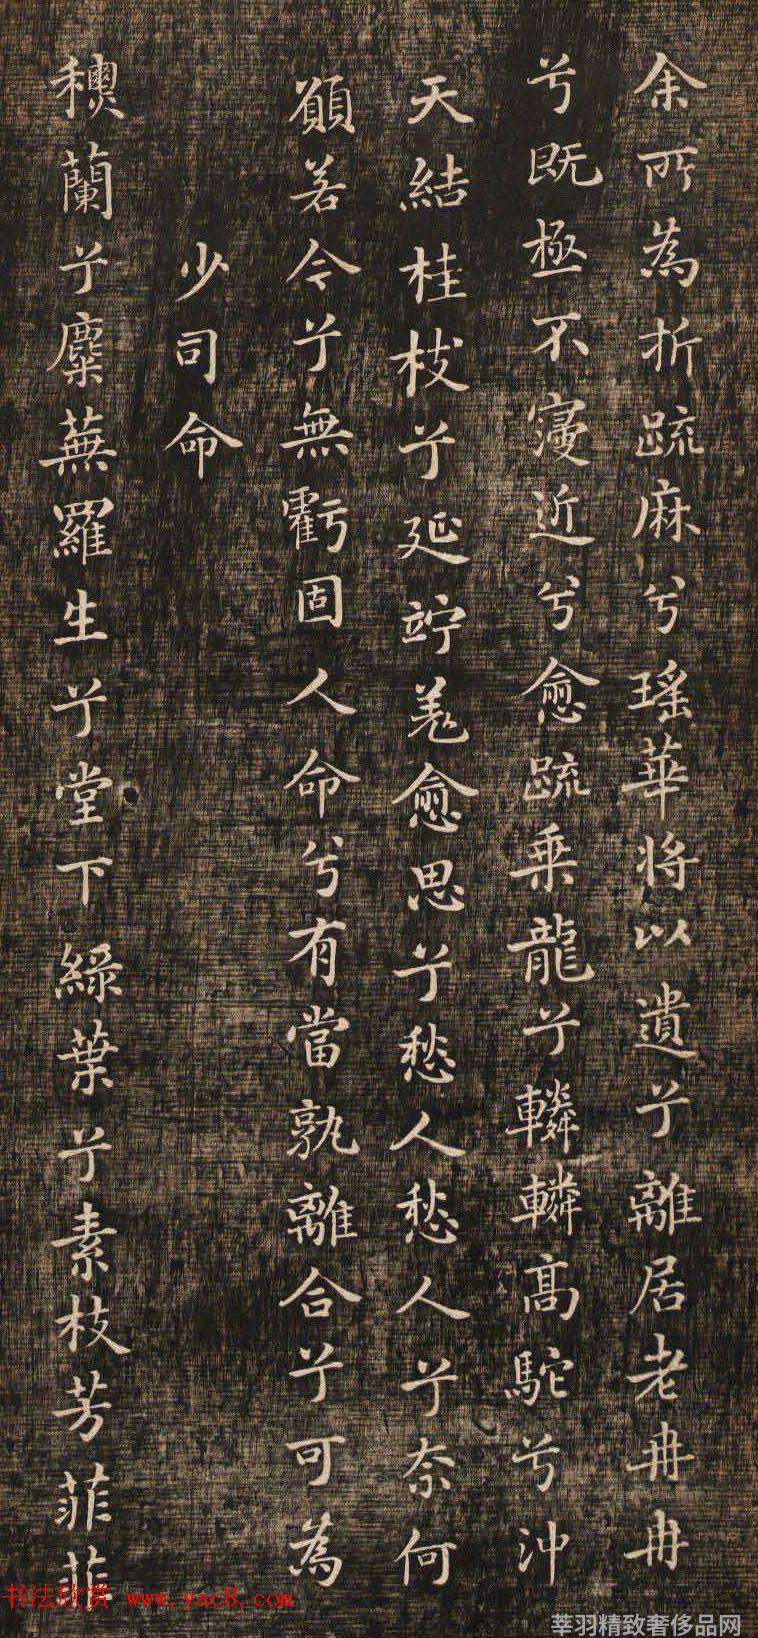 余所為折疏麻兮瑤華將以遺兮離居老冉冉
兮既極不寖近兮愈疏乘龍兮轔轔高駝兮沖
天結桂枝兮延竚羌愈思兮愁人愁人兮奈何
願若今兮無虧固人命兮有當孰離合兮可為
少司命
穮蘭兮麋蕪羅生兮堂下綠葉兮素枝芳菲菲
书法欣赏 www.yac8.com
莘羽精致奢侈品网